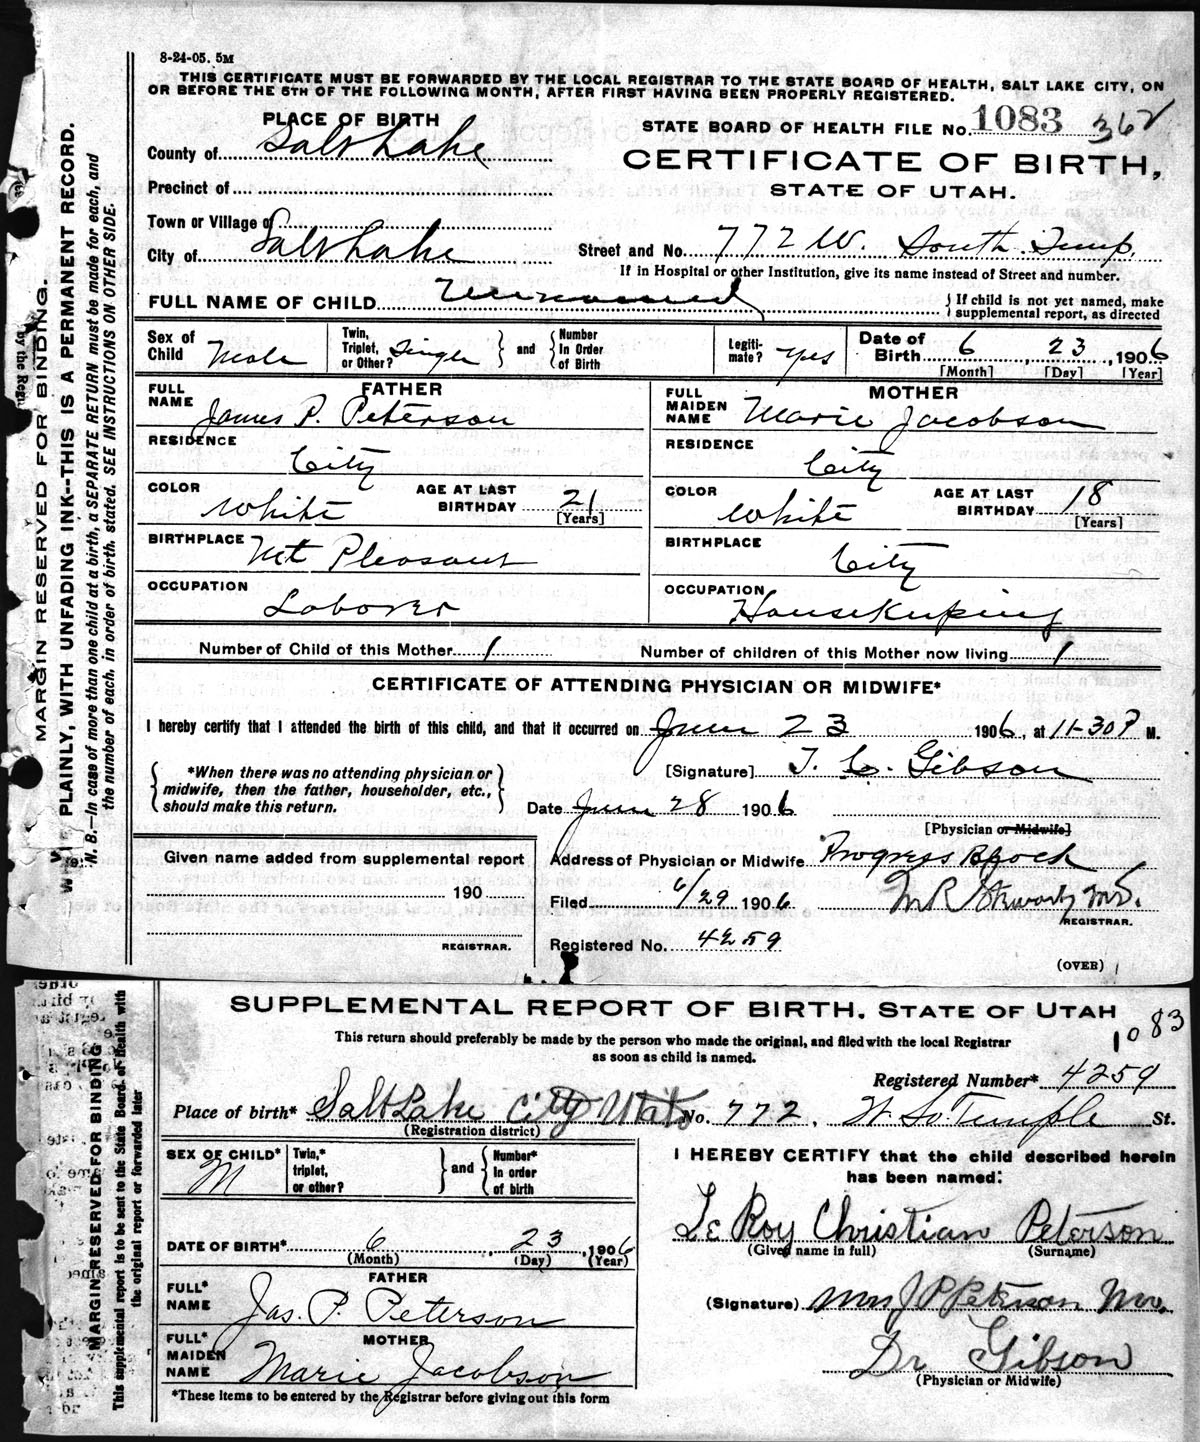 8-24-05. 5M
THIS CERTIFICATE MUST BE FORWARDED BY THE LOCAL REGISTRAR TO THE STATE BOARD OF HEALTH, SALT LAKE CITY, ON
OR BEFORE THE 5TH OF THE FOLLOWING MONTH, AFTER FIRST HAVING BEEN PROPERLY REGISTERED.
PLACE OF BIRTH
STATE BOARD OF HEALTH FILE No. 1083 362
County of Salt Lake
CERTIFICATE OF BIRTH,
STATE OF UTAH.
Precinct of
Town or Village of
City of Salt Lake
Street and No. 772 W. South Temp.
If in Hospital or other Institution, give its name instead of Street and number.
FULL NAME OF CHILD Unnamed
If child is not yet named, make supplemental report, as directed
Sex of Child Male
Twin, Triplet, or Other? Single and Number In Order of Birth
Legitimate? Yes
Date of Birth 6, 23, 1906
[Month] [Day] [Year]
FATHER
FULL NAME James P. Peterson
RESIDENCE City
COLOR White AGE AT LAST BIRTHDAY 21 [Years]
BIRTHPLACE Mt Pleasant
OCCUPATION Laborer
MOTHER
FULL MAIDEN NAME Marie Jacobson
RESIDENCE City
COLOR White AGE AT LAST BIRTHDAY 18 [Years]
BIRTHPLACE City
OCCUPATION Housekeeping
Number of Child of this Mother 1 Number of children of this Mother now living 1
CERTIFICATE OF ATTENDING PHYSICIAN OR MIDWIFE*
I hereby certify that I attended the birth of this child, and that it occurred on June 23 1906, at 11-30 P M.
*When there was no attending physician or
midwife, then the father, householder, etc.,
should make this return.
[Signature] T. C. Gibson
Date June 28 1906
[Physician or Midwife]
Given name added from supplemental report
190
REGISTRAR.
Address of Physician or Midwife Progress Block
Filed 6/29 1906 M R Stewart M.D.
REGISTRAR.
Registered No. 4259
(OVER)
MARGIN RESERVED FOR BINDING.
PLAINLY, WITH UNFADING INK--THIS IS A PERMANENT RECORD.
N. B.—In case of more than one child at a birth, a SEPARATE RETURN must be made for each, and
the number of each, in order of birth, stated. SEE INSTRUCTIONS ON OTHER SIDE.
SUPPLEMENTAL REPORT OF BIRTH, STATE OF UTAH
This return should preferably be made by the person who made the original, and filed with the local Registrar
as soon as child is named.
1083
Registered Number* 4259
Place of birth* Salt Lake City Utah No. 772, W. So. Temple St.
(Registration district)
SEX OF CHILD* M
Twin,* triplet, or other? and Number* In order of birth
I HEREBY CERTIFY that the child described herein
has been named:
Le Roy Christian Peterson
(Given name in full) (Surname)
DATE OF BIRTH* 6, 23, 1906
(Month) (Day) (Year)
FATHER
FULL* NAME Jas. P. Peterson
MOTHER
FULL* MAIDEN NAME Marie Jacobson
(Signature) Mrs J P Peterson
Dr Gibson
(Physician or Midwife)
*These items to be entered by the Registrar before giving out this form
MARGIN RESERVED FOR BINDING
This supplemental report is to be sent to the State Board of Health with
the original report or forwarded later